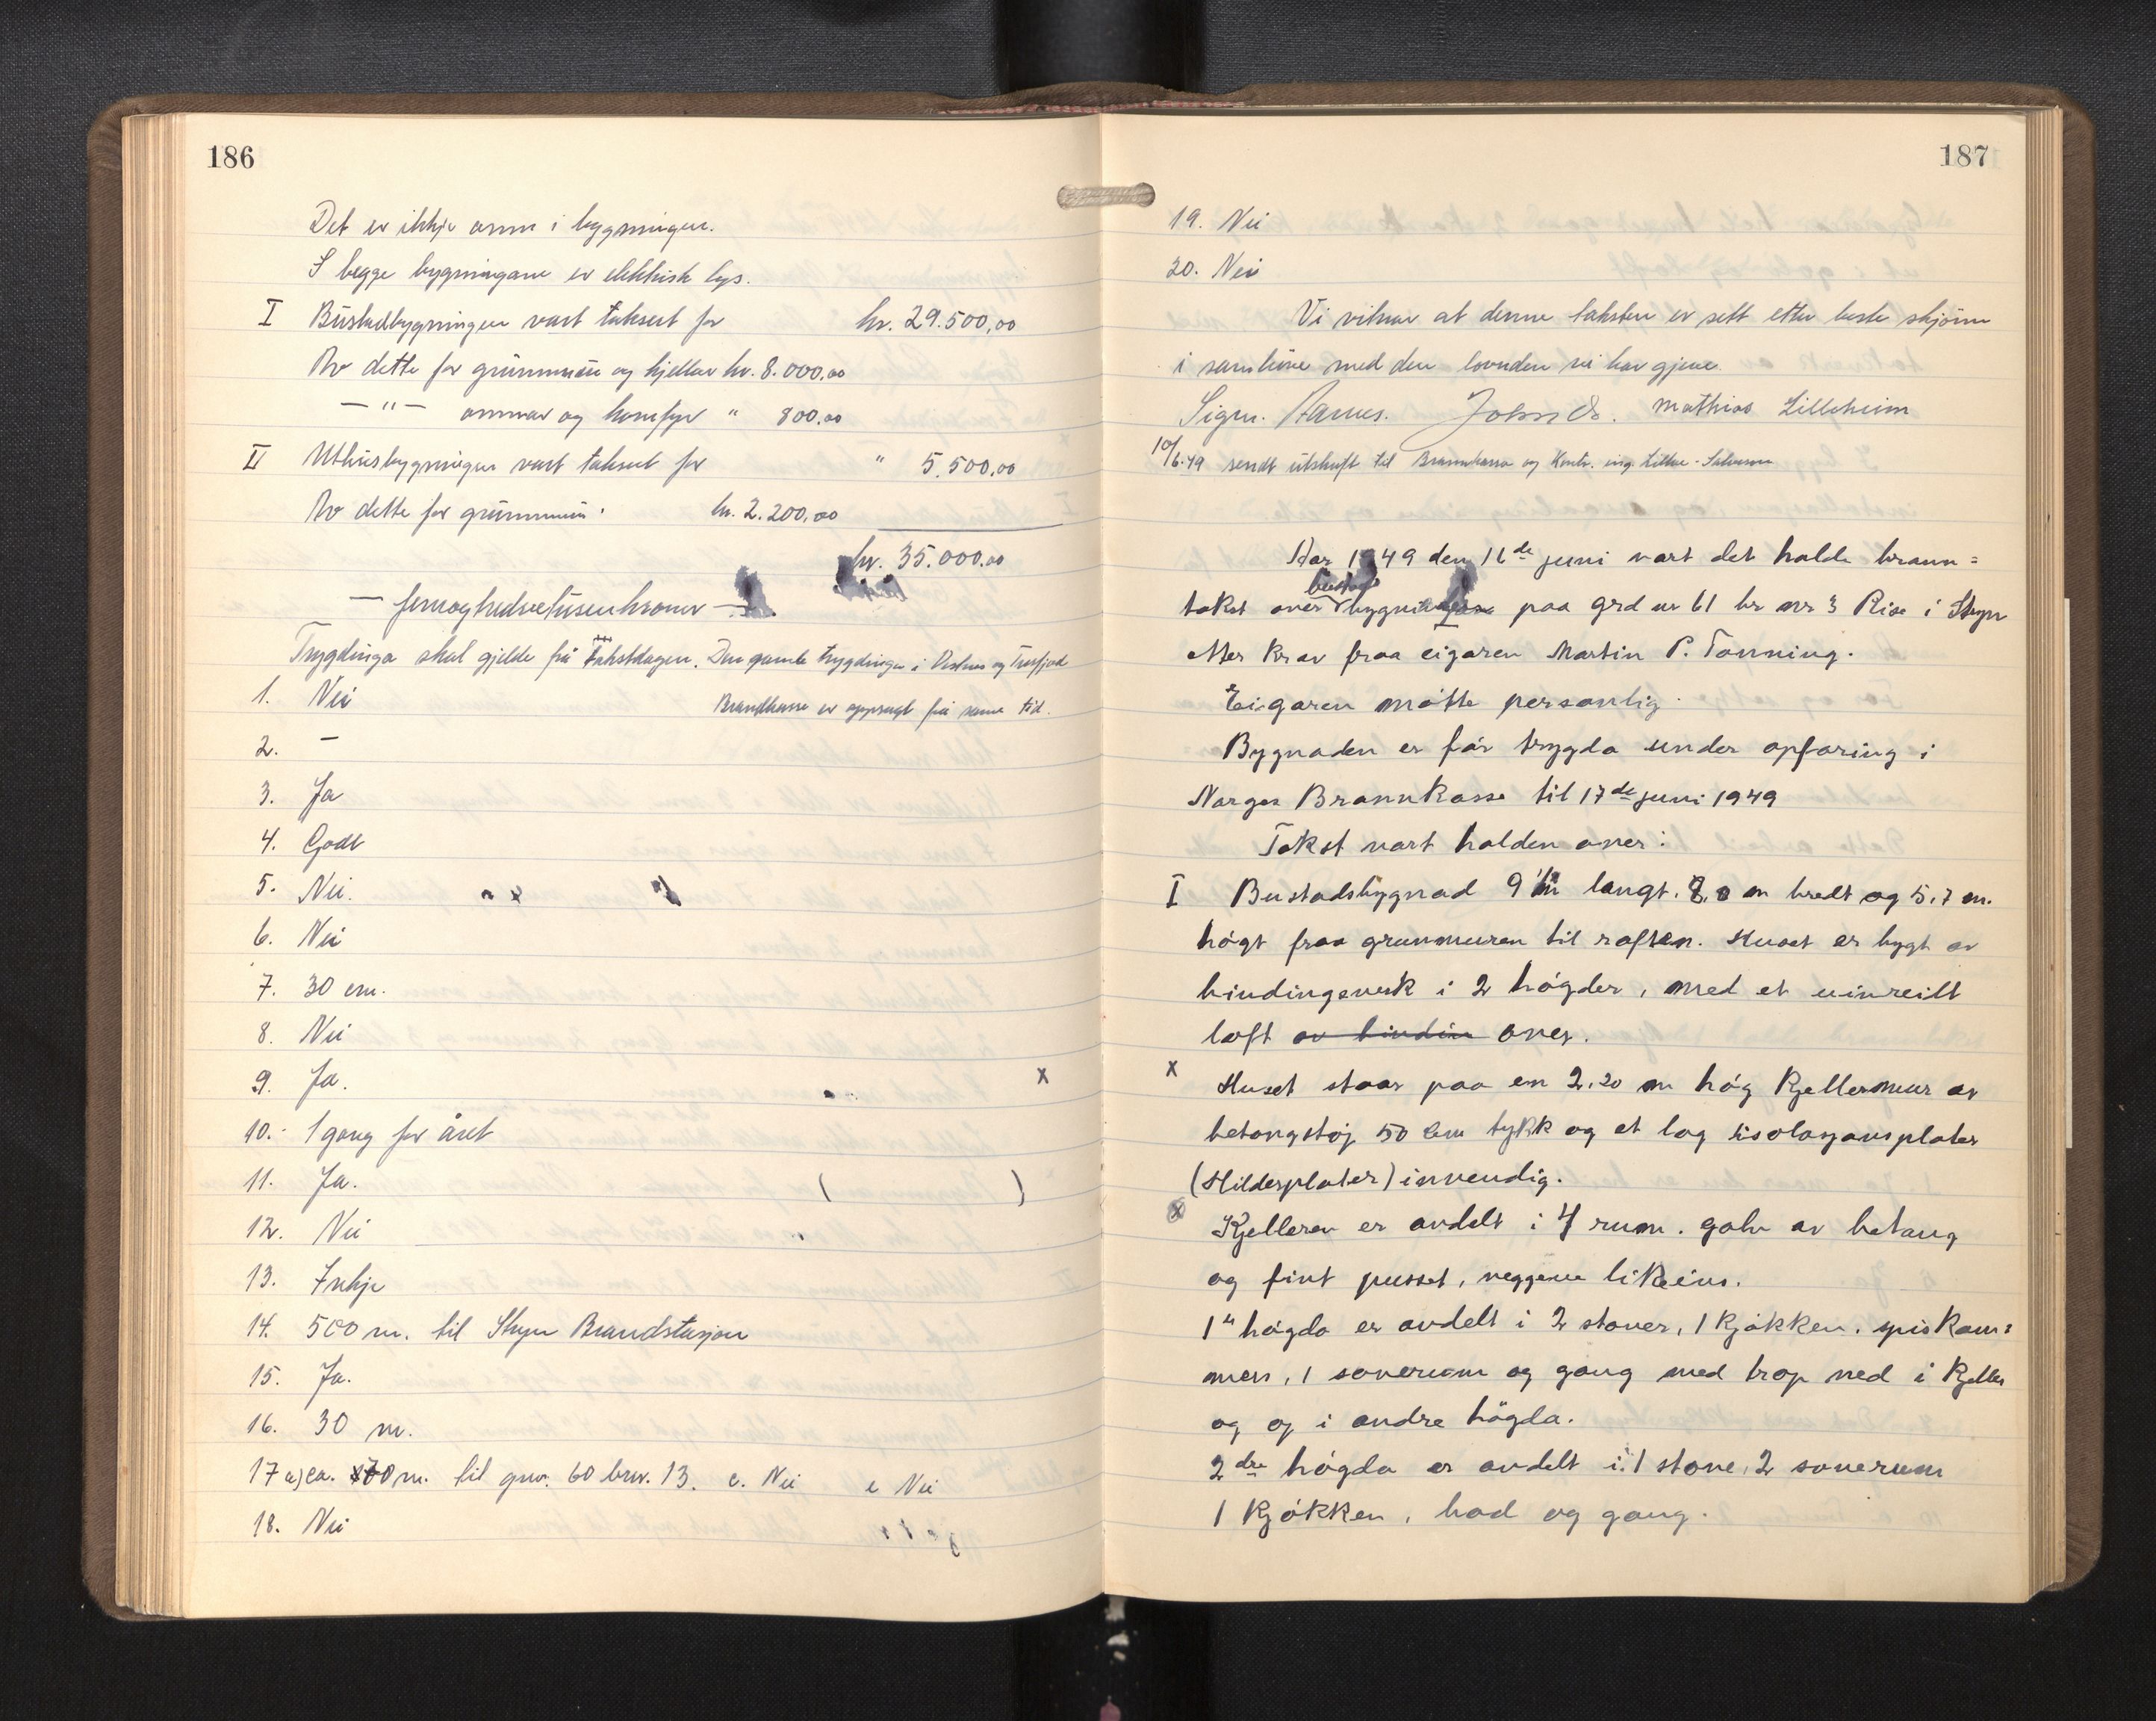 186
Det er ikkje omn i bygningen.
I begge bygningane er elektrisk lys.
I Bustadbygningen vart taksert for kr. 29.500,00
Av dette for grunnmur og kjellar kr. 8.000,00
— " — omnar og komfyr " 800,00
II Uthusbygningen vart taksert for " 5.500,00
Av dette for grunnmur kr. 2.200,00
kr. 35.000,00
— femogtredvetusenkroner —
Trygdinga skal gjelde frå takstdagen. Den gamle trygdingen i Vestnes og Tresfjord
Brandkasse er oppsagt frå same tid.
1. Nei
2. –
3. Ja
4. Godt
5. Nei.
6. Nei
7. 30 cm.
8. Nei
9. Ja. x
10. 1 gang for året
11. Ja. ( )
12. Nei
13. Inkje
14. 500 m. til Stryn Brandstasjon
15. Ja.
16. 30 m.
17 a) ca. 70 m. til gnr. 60 brnr. 13. c. Nei e Nei
18. Nei
187
19. Nei
20. Nei
Vi vitnar at denne taksten er sett etter beste skjönn
i samhøve med den lovnden vi har gjeve.
Sign. Mathias Lilleheim
10/6-49 sendt utskrift til Brannkassa og Kontr. ing.
Aar 1949 den 16de juni vart det halde brann=
takst over bustad bygningen paa grd nr 61 br nr 3 Rise i Stryn
etter krav fraa eigaren Martin P. Tonning.
Eigaren møtte personlig.
Bygnaden er før trygda under opføring i
Norges Brannkasse til 17de juni 1949
Takst vart halden over:
I Bustadsbygnad 9 m langt. 8,0 m bredt og 5,7 m.
högt fraa grunmuren til raften. Huset er bygt av
bindingsverk i 2 høgder, med et uinreilt
loft av bindin over.
x Huset staar paa en 2,20 m høg kjellermur av
betongstøp 50 cm tykk og et lag isolasjonsplater
(Hilderplater) invendig.
x Kjelleren er avdelt i 4 rum. golv av betong
og fint pusset, veggene likeins.
1ste høgda er avdelt i 2 stover, 1 kjøkken. spiskam=
mers, 1 soverum og gang med trap ned i kjeller
og op i andre högda.
2dre høgda er avdelt i: 1 stove, 2 soverum
1 kjøkken, bad og gang.